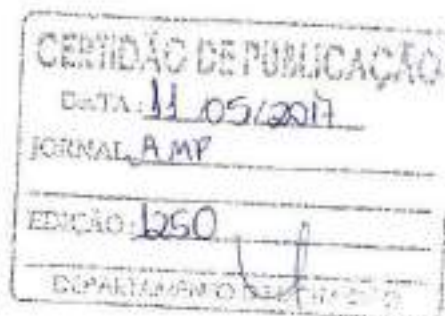 CERTIDÃO DE PUBLICAÇÃO
DATA: 11 05/2017
JORNAL AMP
EDIÇÃO: 1250
DEPARTAMENTO